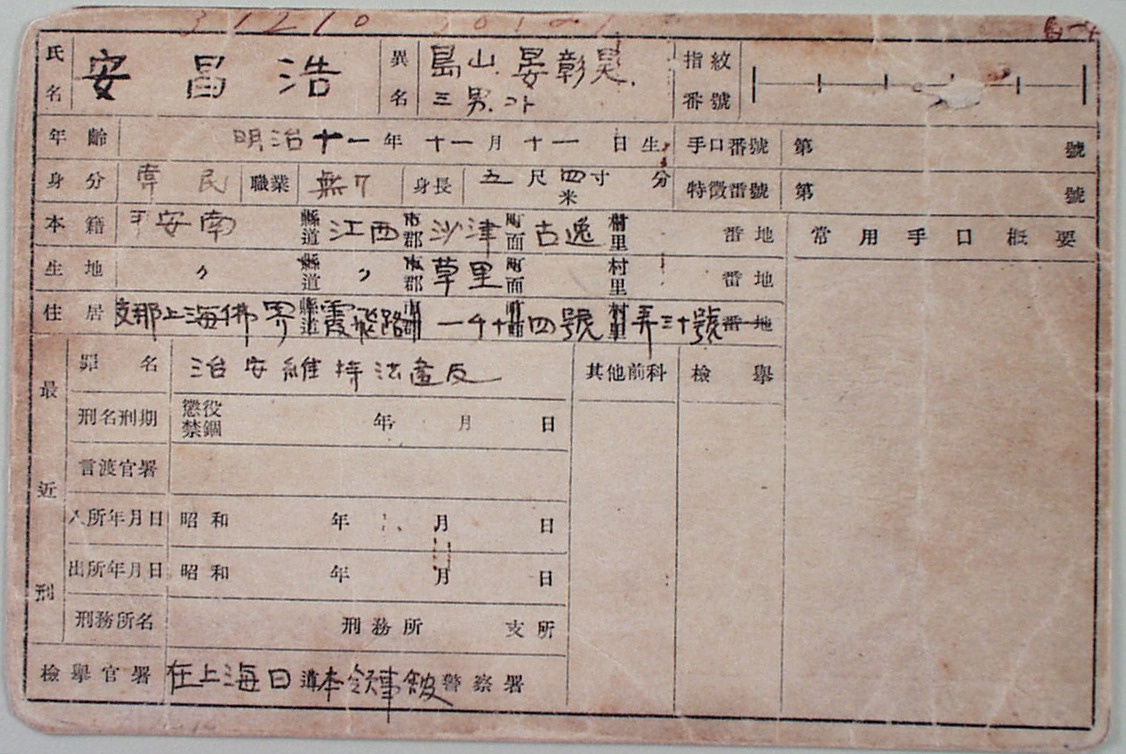 氏名 安昌浩 異名 島山 晏彰昊 三男 指紋番號
年齡 明治十一年十一月十一日生 手口番號 第 號
身分 常民 職業 無 身長 五尺四寸 分 米 特徵番號 第 號
本籍 平安南 縣道 江西 市郡 沙津 町面 古逸 村里 番地 常用手口概要
生地 〃 縣道 〃 市郡 草里 町面 村里 番地
住居 支那上海佛界 縣道 霞飛路 一千十四號 村里 弄三十號 番地
最近刑
罪名 治安維持法違反 其他前科 檢擧
刑名刑期 懲役 禁錮 年 月 日
言渡官署
入所年月日 昭和 年 月 日
出所年月日 昭和 年 月 日
刑務所名 刑務所 支所
檢擧官署 在上海日本領事館警察署